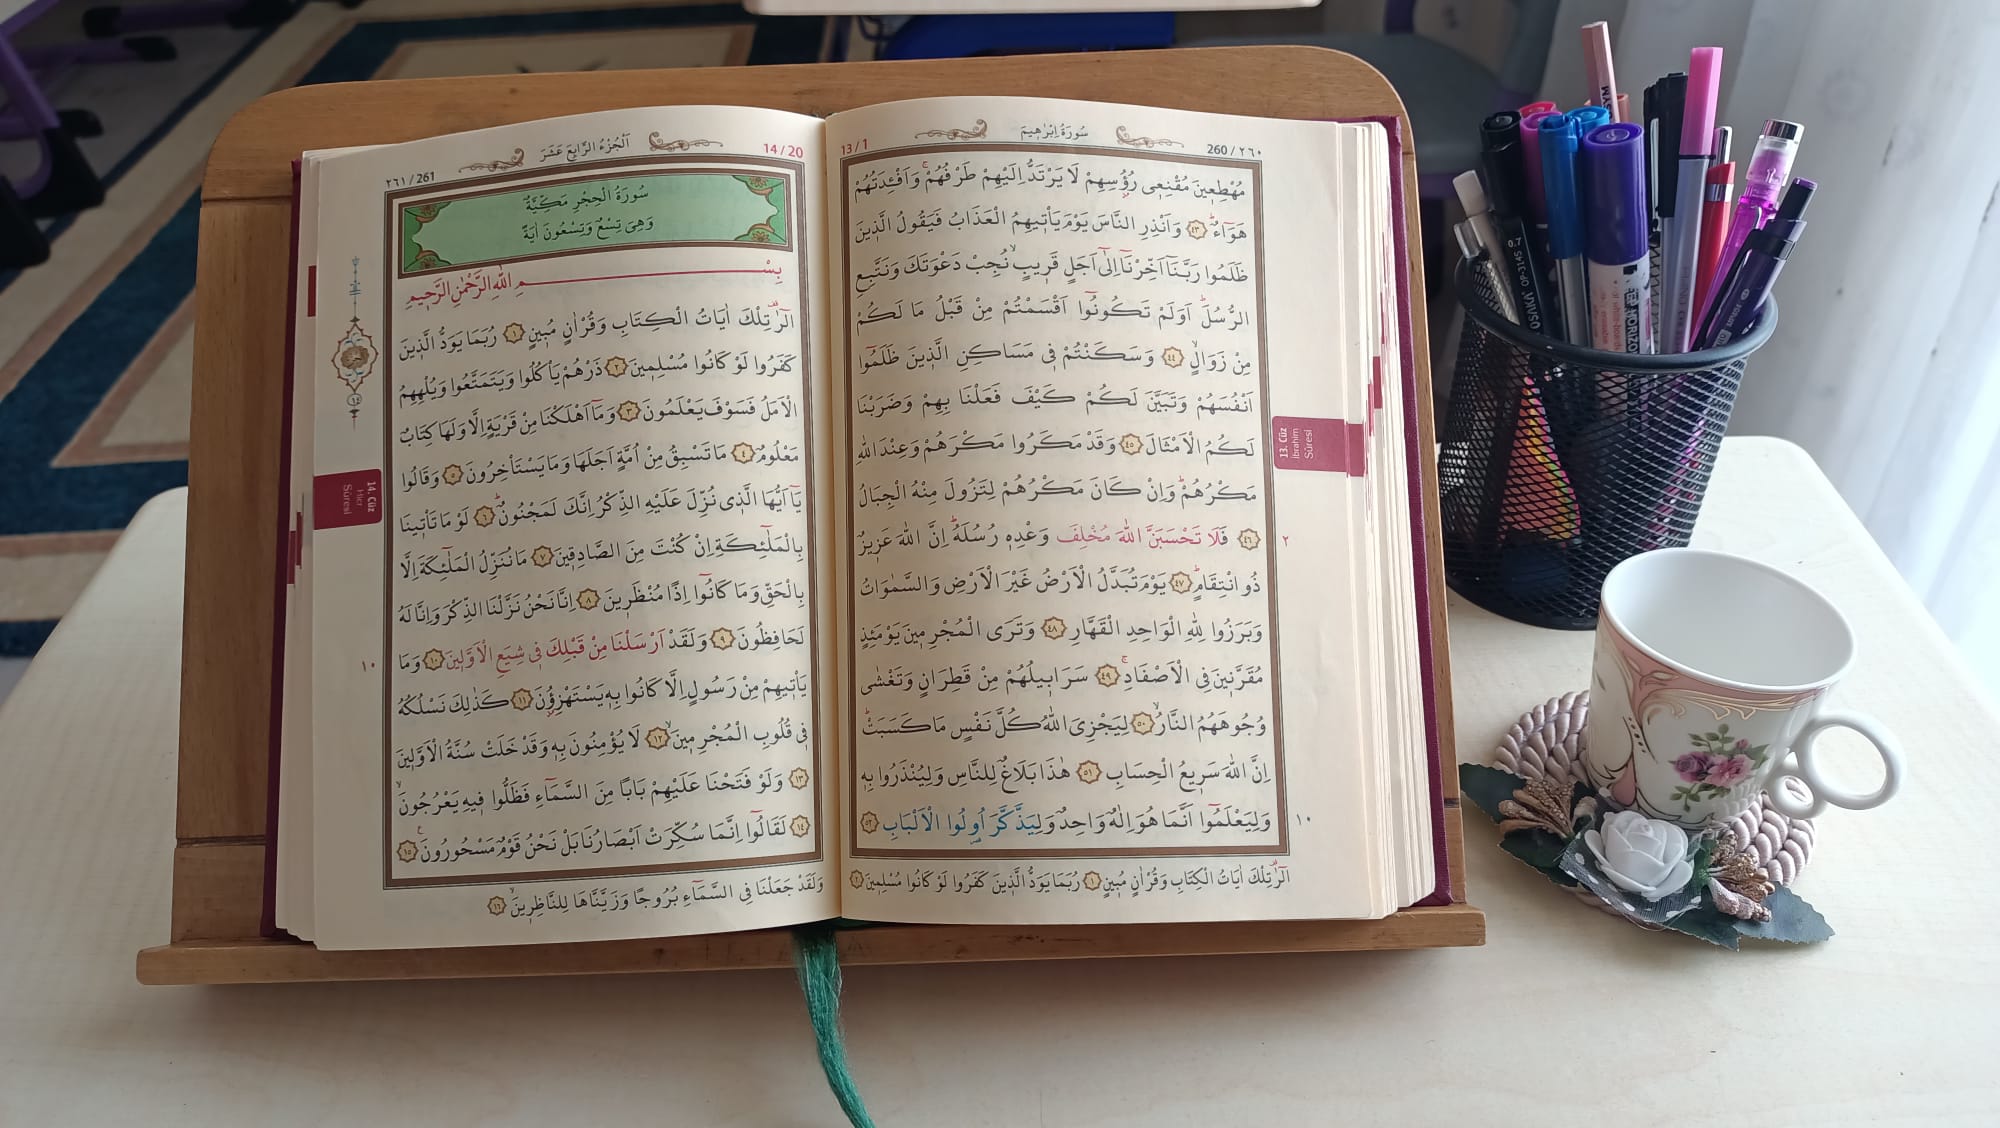 260 / ٢٦٠
سُورَةُ اِبْرٰهِيمَ
13 / 1
مُهْطِعِينَ مُقْنِعِي رُؤُسِهِمْ لَا يَرْتَدُّ اِلَيْهِمْ طَرْفُهُمْۚ وَاَفْـِٔدَتُهُمْ
هَوَٓاءٌؕ ﴿٤٣﴾ وَاَنْذِرِ النَّاسَ يَوْمَ يَأْتِيهِمُ الْعَذَابُ فَيَقُولُ الَّذِينَ
ظَلَمُوا رَبَّنَٓا اَخِّرْنَٓا اِلٰٓى اَجَلٍ قَرِيبٍۙ نُجِبْ دَعْوَتَكَ وَنَتَّبِعِ
الرُّسُلَؕ اَوَلَمْ تَكُونُٓوا اَقْسَمْتُمْ مِنْ قَبْلُ مَا لَكُمْ
مِنْ زَوَالٍۙ ﴿٤٤﴾ وَسَكَنْتُمْ فِي مَسَاكِنِ الَّذِينَ ظَلَمُٓوا
اَنْفُسَهُمْ وَتَبَيَّنَ لَكُمْ كَيْفَ فَعَلْنَا بِهِمْ وَضَرَبْنَا
لَكُمُ الْاَمْثَالَ ﴿٤٥﴾ وَقَدْ مَكَرُوا مَكْرَهُمْ وَعِنْدَ اللّٰهِ
مَكْرُهُمْؕ وَاِنْ كَانَ مَكْرُهُمْ لِتَزُولَ مِنْهُ الْجِبَالُ
﴿٤٦﴾ فَلَا تَحْسَبَنَّ اللّٰهَ مُخْلِفَ وَعْدِهٖ رُسُلَهُؕ اِنَّ اللّٰهَ عَزِيزٌ
٢
ذُو انْتِقَامٍؕ ﴿٤٧﴾ يَوْمَ تُبَدَّلُ الْاَرْضُ غَيْرَ الْاَرْضِ وَالسَّمٰوَاتُ
وَبَرَزُوا لِلّٰهِ الْوَاحِدِ الْقَهَّارِ ﴿٤٨﴾ وَتَرَى الْمُجْرِمِينَ يَوْمَئِذٍ
مُقَرَّنِينَ فِي الْاَصْفَادِۚ ﴿٤٩﴾ سَرَابِيلُهُمْ مِنْ قَطِرَانٍ وَتَغْشٰى
وُجُوهَهُمُ النَّارُۙ ﴿٥٠﴾ لِيَجْزِيَ اللّٰهُ كُلَّ نَفْسٍ مَا كَسَبَتْؕ
اِنَّ اللّٰهَ سَرِيعُ الْحِسَابِ ﴿٥١﴾ هٰذَا بَلَاغٌ لِلنَّاسِ وَلِيُنْذَرُوا بِهٖ
وَلِيَعْلَمُٓوا اَنَّمَا هُوَ اِلٰهٌ وَاحِدٌ وَلِيَذَّكَّرَ اُو۬لُوا الْاَلْبَابِ ﴿٥٢﴾
١٠
الٓرٰ۠ تِلْكَ اٰيَاتُ الْكِتَابِ وَقُرْاٰنٍ مُبِينٍ ﴿١﴾ رُبَمَا يَوَدُّ الَّذِينَ كَفَرُوا لَوْ كَانُوا مُسْلِمِينَ ﴿٢﴾
13. Cüz
İbrahim
Sûresi
14 / 20
اَلْجُزْءُ الرَّابِعَ عَشَرَ
٢٦١ / 261
سُورَةُ الْحِجْرِ مَكِّيَّةٌ
وَهِيَ تِسْعٌ وَتِسْعُونَ اٰيَةً
بِسْمِ اللّٰهِ الرَّحْمٰنِ الرَّحِيمِ
الٓرٰ۠ تِلْكَ اٰيَاتُ الْكِتَابِ وَقُرْاٰنٍ مُبِينٍ ﴿١﴾ رُبَمَا يَوَدُّ الَّذِينَ
كَفَرُوا لَوْ كَانُوا مُسْلِمِينَ ﴿٢﴾ ذَرْهُمْ يَأْكُلُوا وَيَتَمَتَّعُوا وَيُلْهِهِمُ
الْاَمَلُ فَسَوْفَ يَعْلَمُونَ ﴿٣﴾ وَمَٓا اَهْلَكْنَا مِنْ قَرْيَةٍ اِلَّا وَلَهَا كِتَابٌ
مَعْلُومٌ ﴿٤﴾ مَا تَسْبِقُ مِنْ اُمَّةٍ اَجَلَهَا وَمَا يَسْتَأْخِرُونَ ﴿٥﴾ وَقَالُوا
يَٓا اَيُّهَا الَّذِي نُزِّلَ عَلَيْهِ الذِّكْرُ اِنَّكَ لَمَجْنُونٌؕ ﴿٦﴾ لَوْ مَا تَأْتِينَا
بِالْمَلٰٓئِكَةِ اِنْ كُنْتَ مِنَ الصَّادِقِينَ ﴿٧﴾ مَا نُنَزِّلُ الْمَلٰٓئِكَةَ اِلَّا
بِالْحَقِّ وَمَا كَانُٓوا اِذًا مُنْظَرِينَ ﴿٨﴾ اِنَّا نَحْنُ نَزَّلْنَا الذِّكْرَ وَاِنَّا لَهُ
لَحَافِظُونَ ﴿٩﴾ وَلَقَدْ اَرْسَلْنَا مِنْ قَبْلِكَ فِي شِيَعِ الْاَوَّلِينَ ﴿١٠﴾ وَمَا
١٠
يَأْتِيهِمْ مِنْ رَسُولٍ اِلَّا كَانُوا بِهٖ يَسْتَهْزِؤُ۫نَ ﴿١١﴾ كَذٰلِكَ نَسْلُكُهُ
فِي قُلُوبِ الْمُجْرِمِينَۙ ﴿١٢﴾ لَا يُؤْمِنُونَ بِهٖ وَقَدْ خَلَتْ سُنَّةُ الْاَوَّلِينَ
﴿١٣﴾ وَلَوْ فَتَحْنَا عَلَيْهِمْ بَابًا مِنَ السَّمَٓاءِ فَظَلُّوا فِيهِ يَعْرُجُونَۙ
﴿١٤﴾ لَقَالُٓوا اِنَّمَا سُكِّرَتْ اَبْصَارُنَا بَلْ نَحْنُ قَوْمٌ مَسْحُورُونَۚ ﴿١٥﴾
وَلَقَدْ جَعَلْنَا فِي السَّمَٓاءِ بُرُوجًا وَزَيَّنَّاهَا لِلنَّاظِرِينَۙ ﴿١٦﴾
14. Cüz
Hicr
Sûresi
0.7
OP-3145
OSAKA